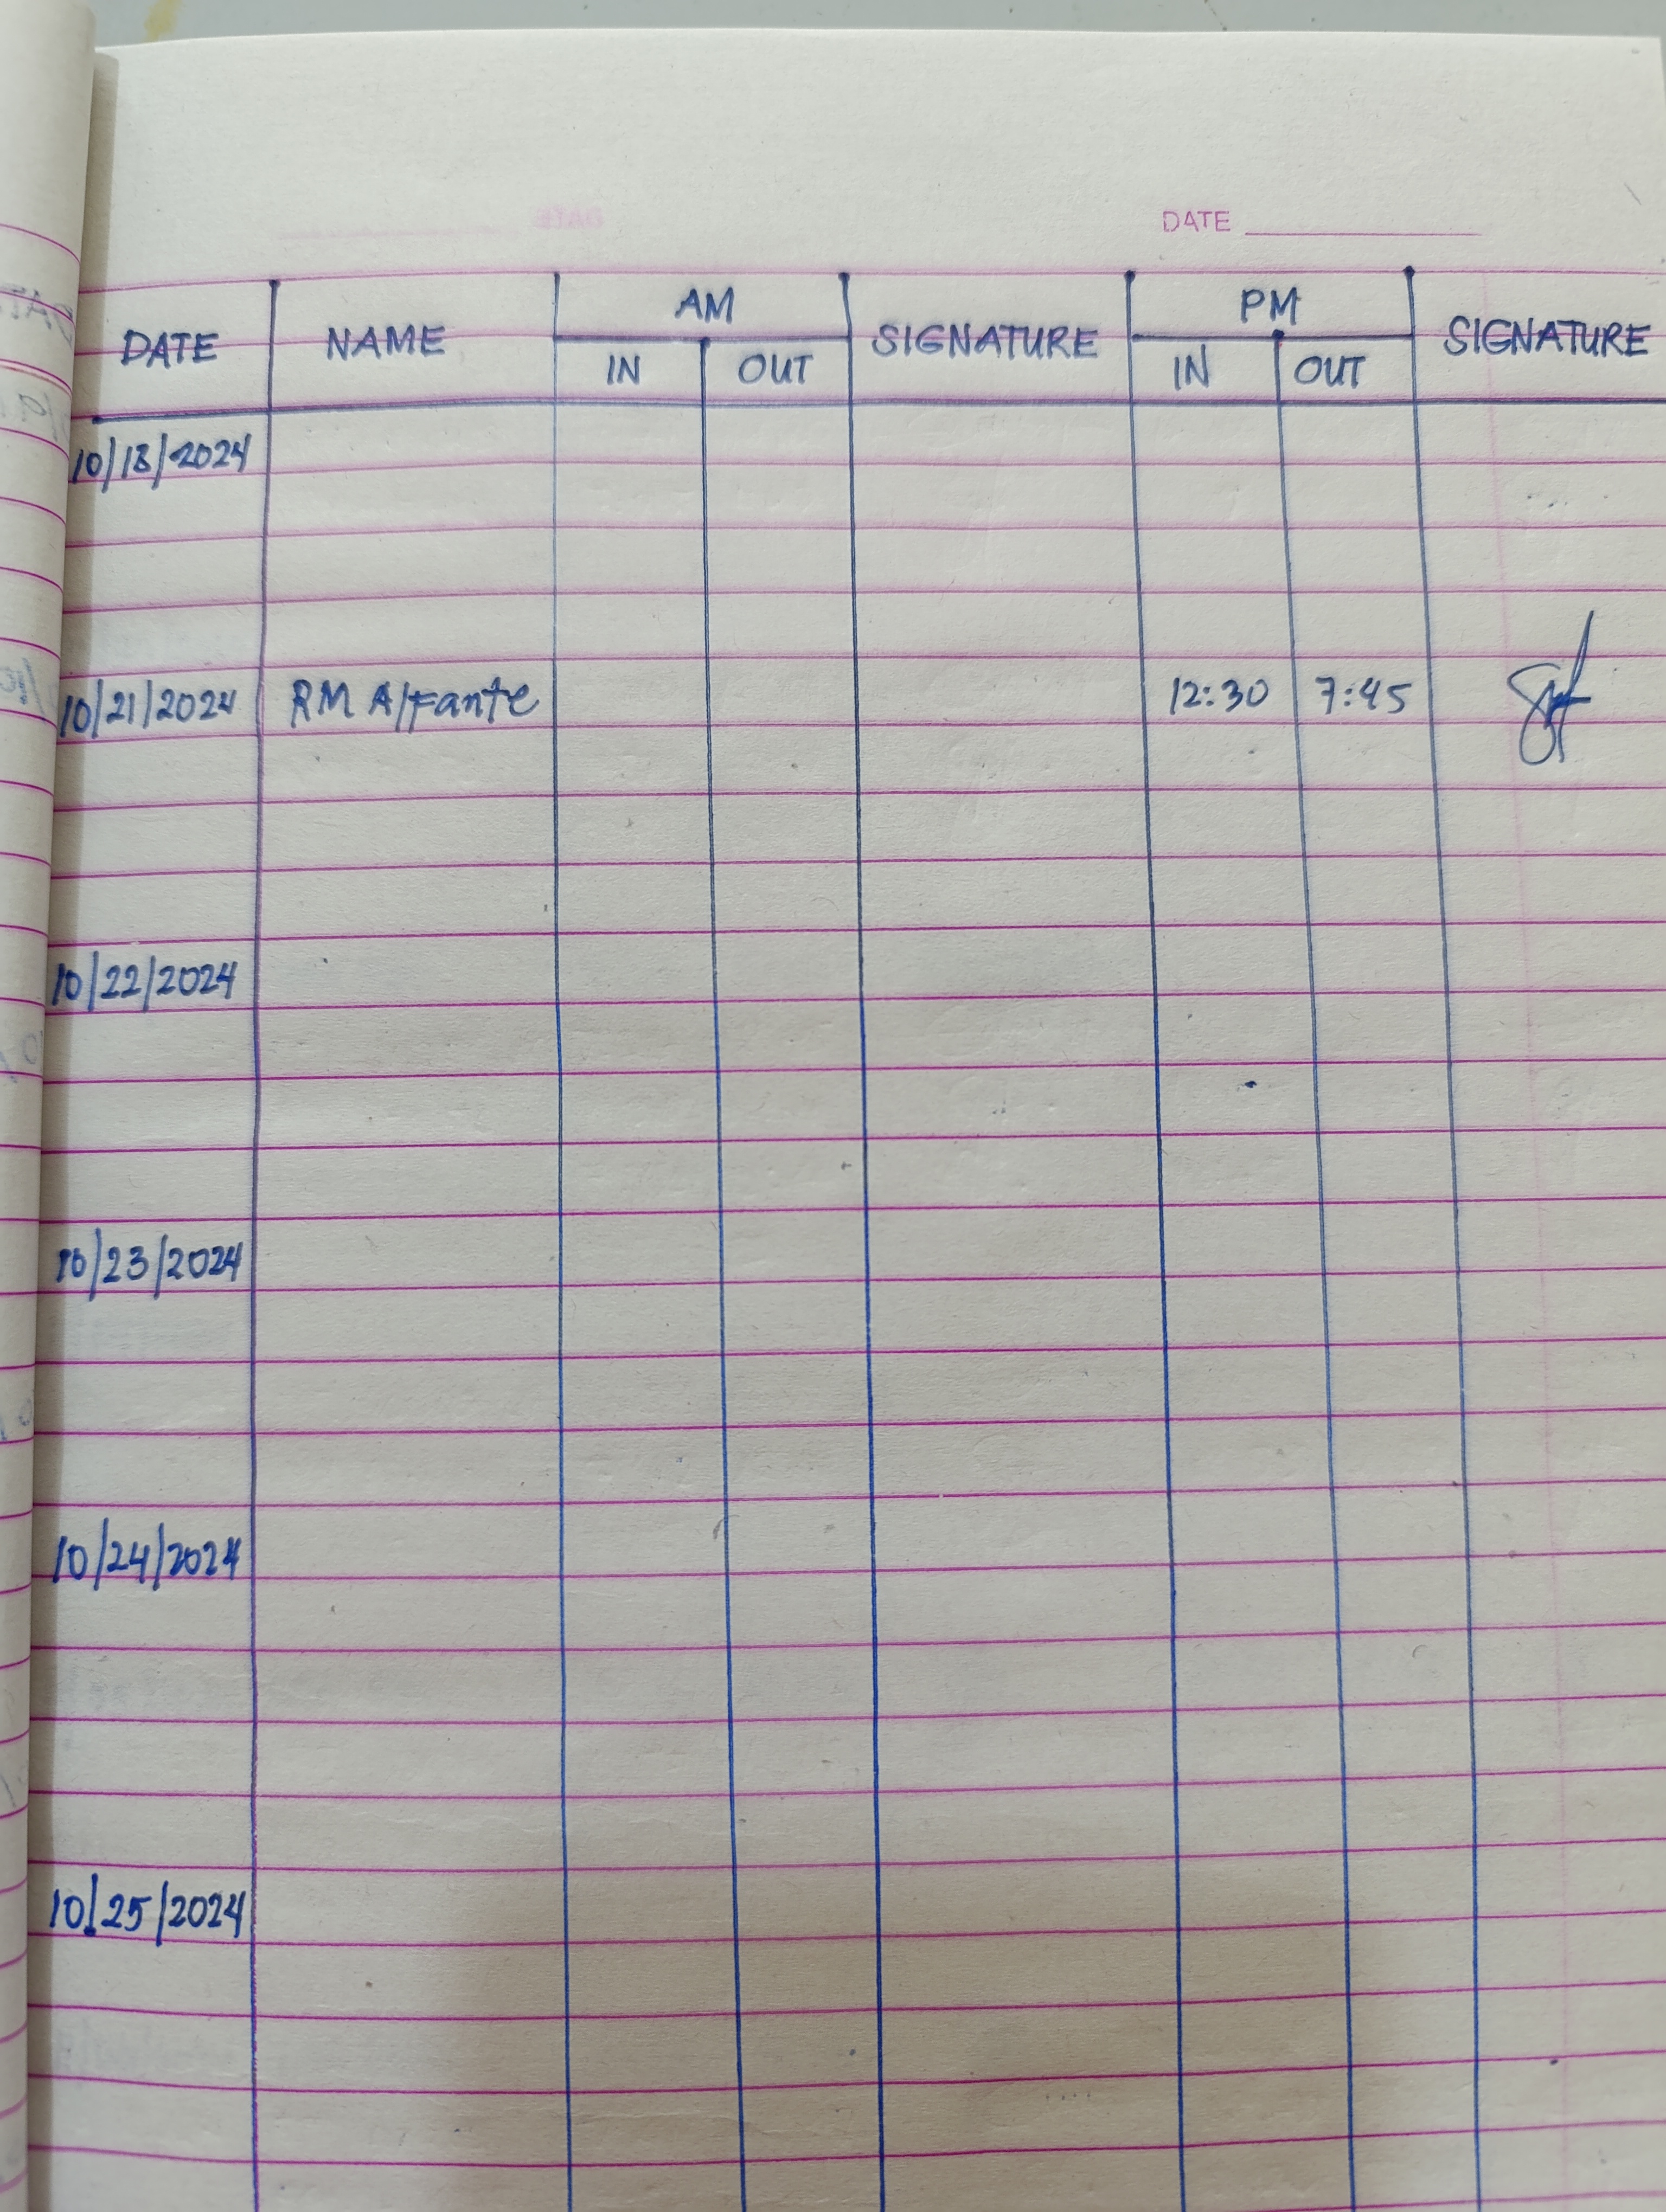 DATE
AM PM
DATE NAME SIGNATURE SIGNATURE
IN OUT IN OUT
10/18/2024
10/21/2024 RM Alfante 12:30 7:45
10/22/2024
10/23/2024
10/24/2024
10/25/2024